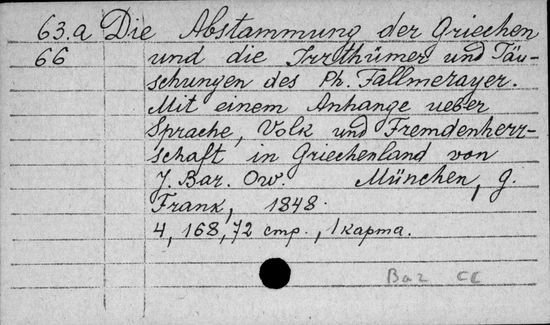 63.a Die Abstammung der Griechen
66 und die Irrthümer und Täu-
schungen des Ph. Fallmerayer.
Mit einem Anhange ueber
Sprache, Volk und Fremdenherr-
schaft in Griechenland von
J. Bar. Ow. München, g.
Frank, 1848.
4, 168, 72 стр., 1 карта.
Baz CC